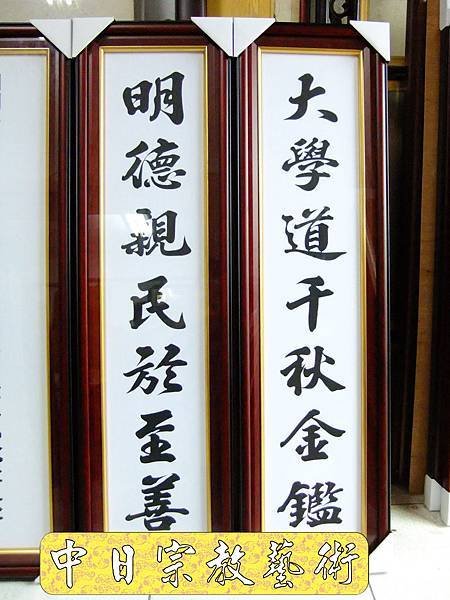 大學道千秋金鑑
明德親民於至善
中日宗教藝術